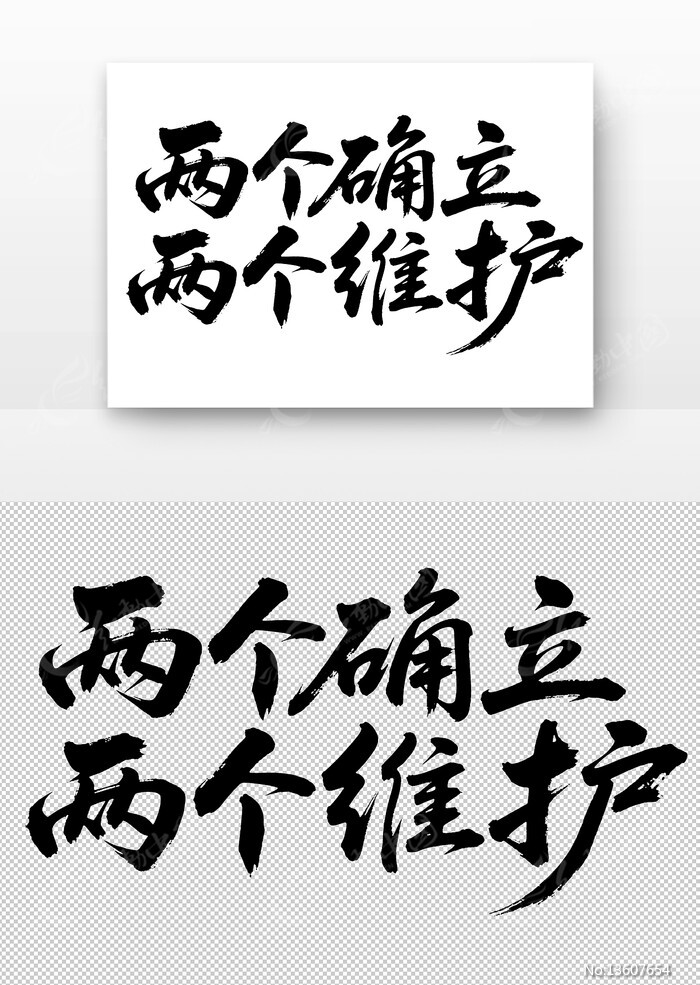 两个确立
两个维护
两个确立
两个维护
No:13607654